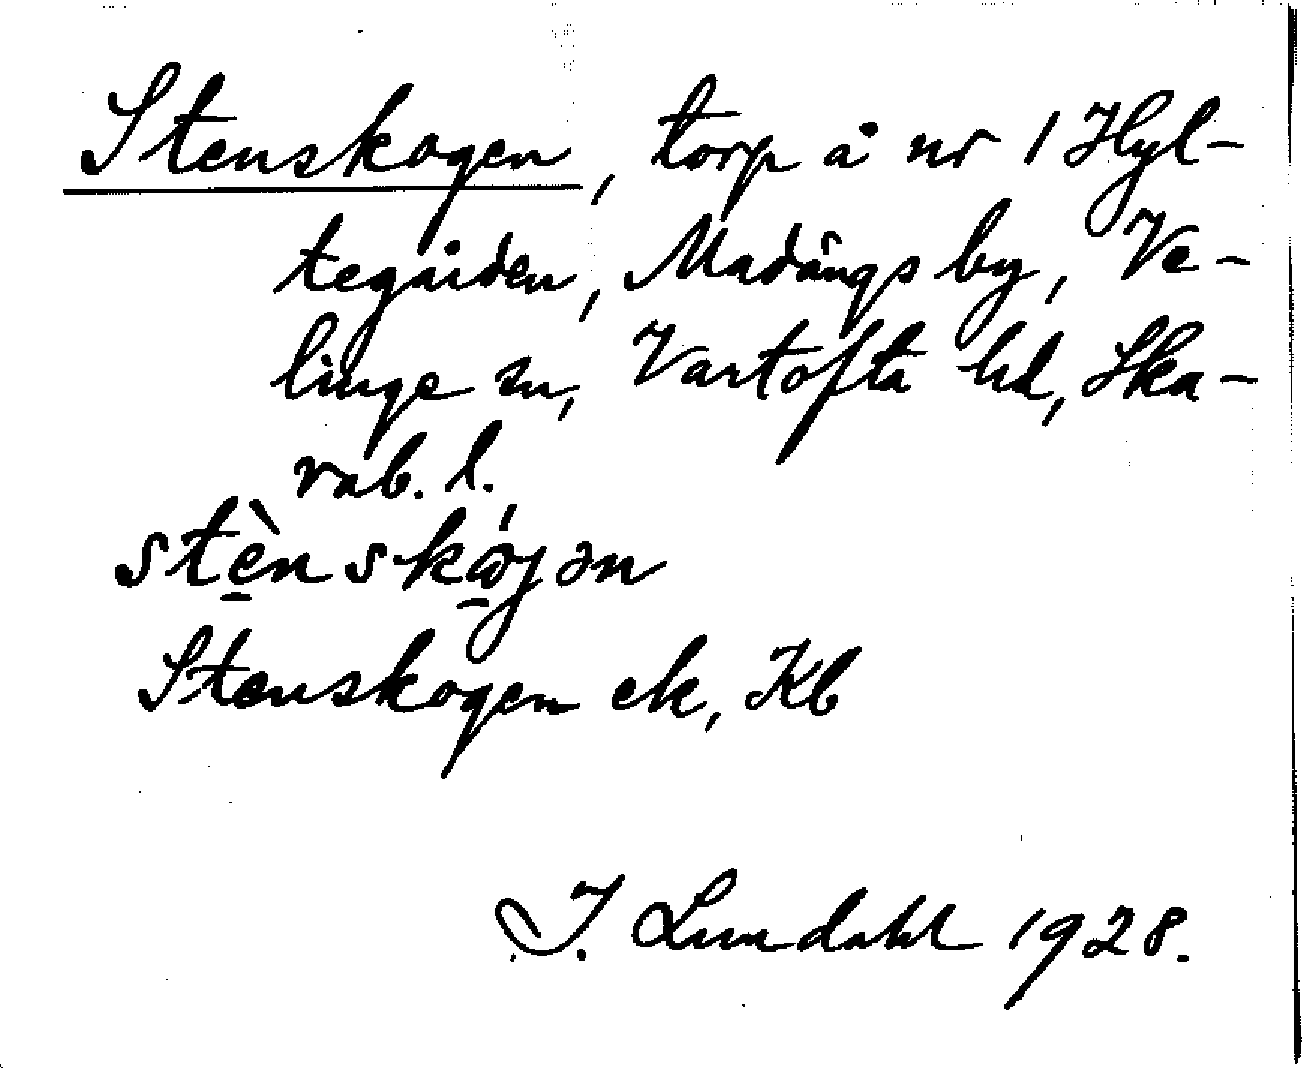 Stenskogen, torp å nr 1 Hyl-
tegården, Madängs by, Ve-
linge sn, Vartofta hd, Ska-
rab. l.
stè̠nskώ̠jən
Stenskogen ek, Kb
I. Lundahl 1928.